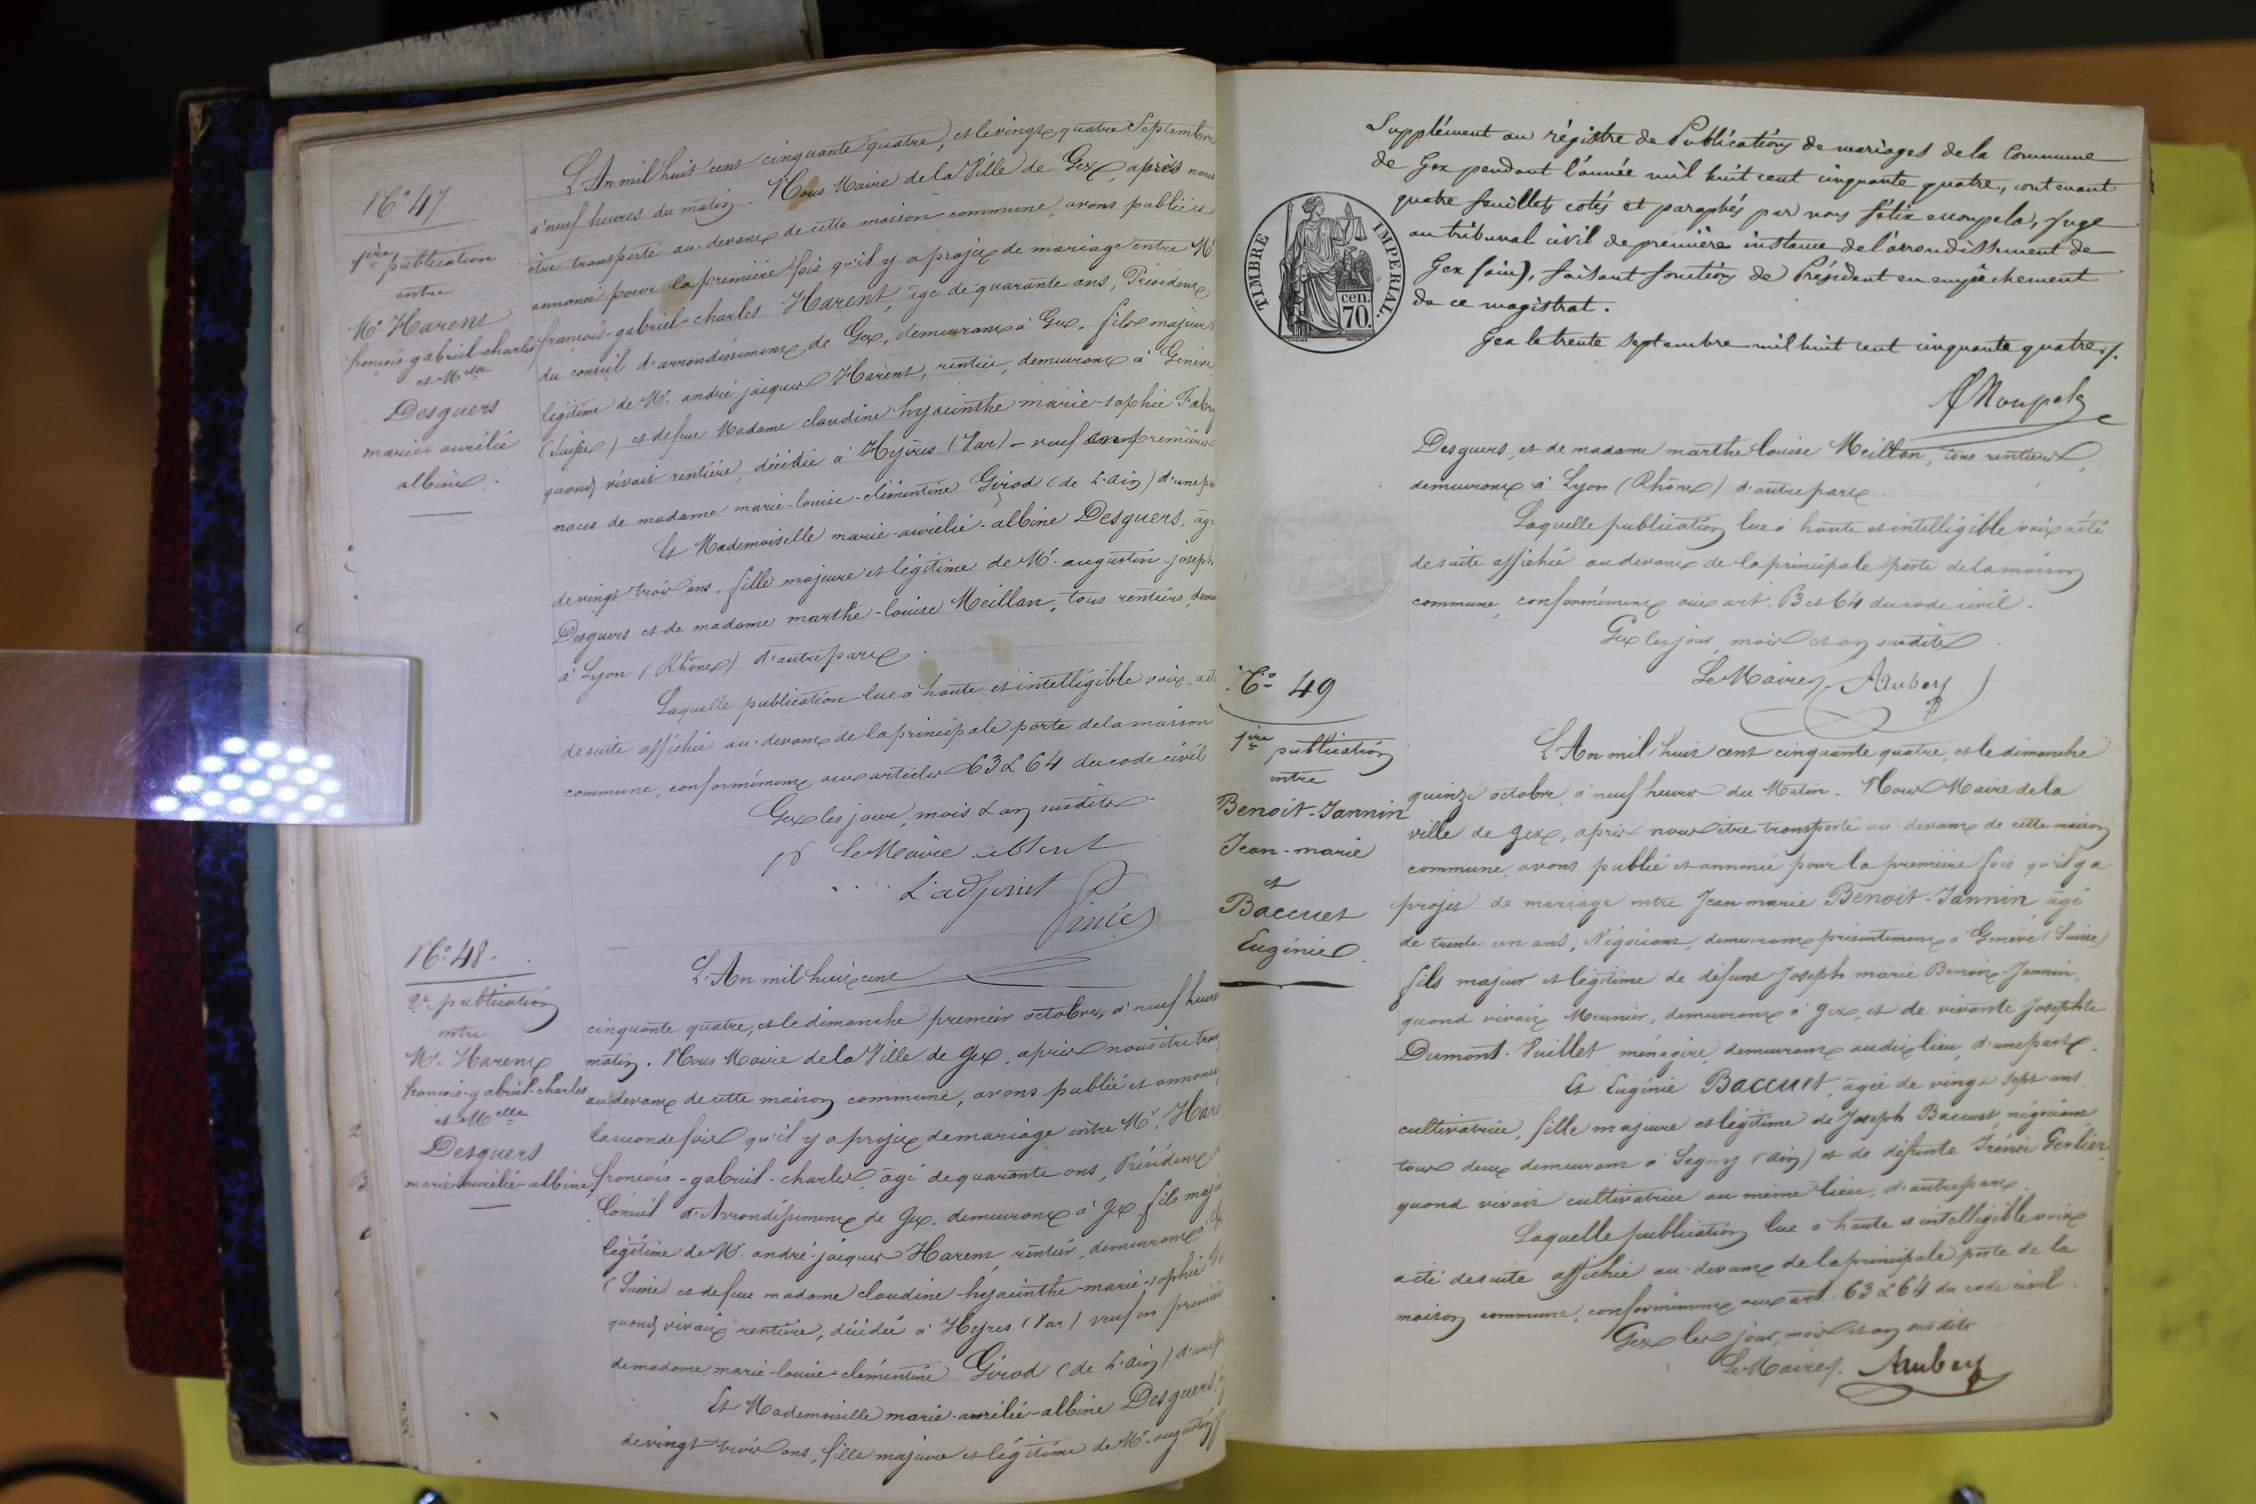 L'An mil huit cent cinquante quatre, et le vingt quatre Septembre
N° 47
à neuf heures du matin. Nous Maire de la Ville de Gex, après nous
être transporté au-devant de cette maison commune, avons publié et
1ère publication
entre
Mr. Harent
françois-gabriel-charles
et Melle
Desguers
marie-aurélié
albine.
annoncé pour la première fois qu'il y a projet de mariage entre Mr
françois-gabriel-charles Harent, âgé de quarante ans, Président
du conseil d'arrondissement de Gex, demeurant à Gex, fils majeur
légitime de Mr. andré jacques Harent, rentier, demeurant à Genève
(Suisse) et de feue Madame claudine hyacinthe marie-sophie
quand vivait rentière, décédée à Hyères (Var) - veuf en premières
noces de madame marie-louise-clémentine Girod (de L'ain) d'une
Et Mademoiselle marie-aurélié-albine Desguers, âgé
de vingt trois ans, fille majeure et légitime de Mr. augustin-joseph
Desguers et de madame marthe-louise Meillan, tous rentiers,
à Lyon (Rhône) d'autre part.
Laquelle publication lue à haute et intelligible voix,
de suite affichée au-devant de la principale porte de la maison
commune, conformément aux articles 63 & 64 du code civil
Gex les jour, mois & an susdits
pr Le Maire absent
L'adjoint
N° 48.
2e publication
entre
Mr. Harent
françois-gabriel-charles
et Melle
Desguers
marie-aurélié-albine
L'An mil huit cent
cinquante quatre, et le dimanche premier octobre, à neuf heures
matin. Nous Maire de la Ville de Gex, après nous être
au devant de cette maison commune, avons publié et annoncé
la seconde fois qu'il y a projet de mariage entre Mr.
françois-gabriel-charles, âgé de quarante ans, Président
Conseil d'Arrondissement de Gex, demeurant à Gex, fils
légitime de Mr. andré-jacques Harent, rentier, demeurant
(Suisse) et de feue madame claudine-hyacinthe-marie-sophie
quand vivait rentière, décédée à Hyères (Var) veuf en
de madame marie-louise-clémentine Girod (de L'ain)
Et Mademoiselle marie-aurélié-albine Desguers,
de vingt trois ans, fille majeure et légitime de Mr. augustin
Supplément au régistre de Publications de mariages de la Commune
de Gex pendant l'année mil huit cent cinquante quatre, contenant
quatre feuillets cotés et paraphés par nous félix Moupela, Juge
au tribunal civil de première instance de l'arrondissement de
Gex (ain), faisant fonction de Président en empêchement
de ce magistrat.
Gex le trente septembre mil huit cent cinquante quatre ./.
TIMBRE IMPERIAL.
cen.
70.
Desguers, et de madame marthe louise Meillan, tous rentiers,
demeurant à Lyon (Rhône) d'autre part.
Laquelle publication lue à haute et intelligible voix a été
de suite affichée au devant de la principale porte de la maison
commune, conformément aux art. 63 et 64 du code civil.
Gex les jour, mois et an susdits
Le Maire, Aubery
N° 49
1ère publication
entre
Benoit-Jannin
Jean-marie
et
Baccuet
Eugénie.
L'An mil huit cent cinquante quatre, et le dimanche
quinze octobre, à neuf heures du Matin. Nous Maire de la
ville de Gex, après nous être transporté au-devant de cette maison
commune, avons publié et annoncé pour la première fois qu'il y a
projet de mariage entre Jean marie Benoit-Jannin âgé
de trente un ans, Négociant, demeurant présentement à Genève (Suisse)
fils majeur et légitime de défunt Joseph marie Benoit-Jannin,
quand vivait Meunier, demeurant à Gex, et de vivante Josephte
Dumont-Vuillet ménagère, demeurant audit lieu, d'une part.
Et Eugénie Baccuet, âgée de vingt sept ans
cultivatrice, fille majeure et légitime de Joseph Baccuet, négociant
tous deux demeurant à Segny (ain) et de défunte Irénée Gerlier
quand vivait cultivatrice au même lieu, d'autre part.
Laquelle publication lue à haute et intelligible voix
a été de suite affichée au-devant de la principale porte de la
maison commune, conformément aux art. 63 & 64 du code civil.
Gex les jour, mois et an susdits
Le Maire, Aubery